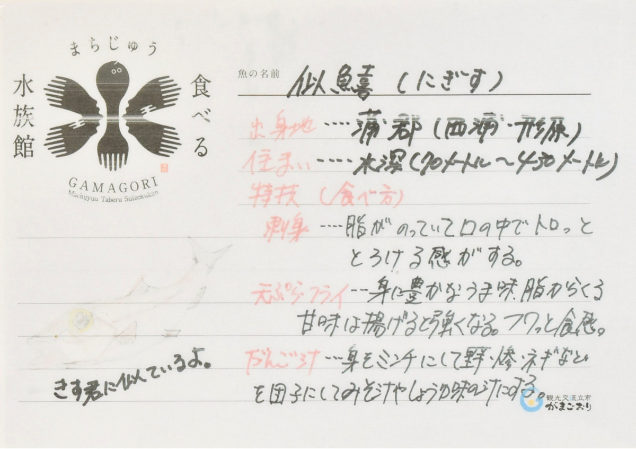 まちじゅう
食べる
水族館
GAMAGORI
Machijyuu Taberu Suizokukan
魚の名前 似鱚 (にぎす)
出身地 ‥‥蒲郡 (西浦・形原)
住まい ‥‥水深 (90メートル〜450メートル)
特技 (食べ方)
刺身 ‥‥脂がのっていて口の中でトロっと
とろける感がする。
天ぷら・フライ ‥‥身に豊かなうま味、脂からくる
甘味は揚げると強くなる。フワっと食感。
だんご汁 ‥‥身をミンチにして野・惨・ネギなど
を団子にしてみそ汁やしょうゆ味の汁にする。
きす君に似ているよ。
観光交流立市
がまごおり